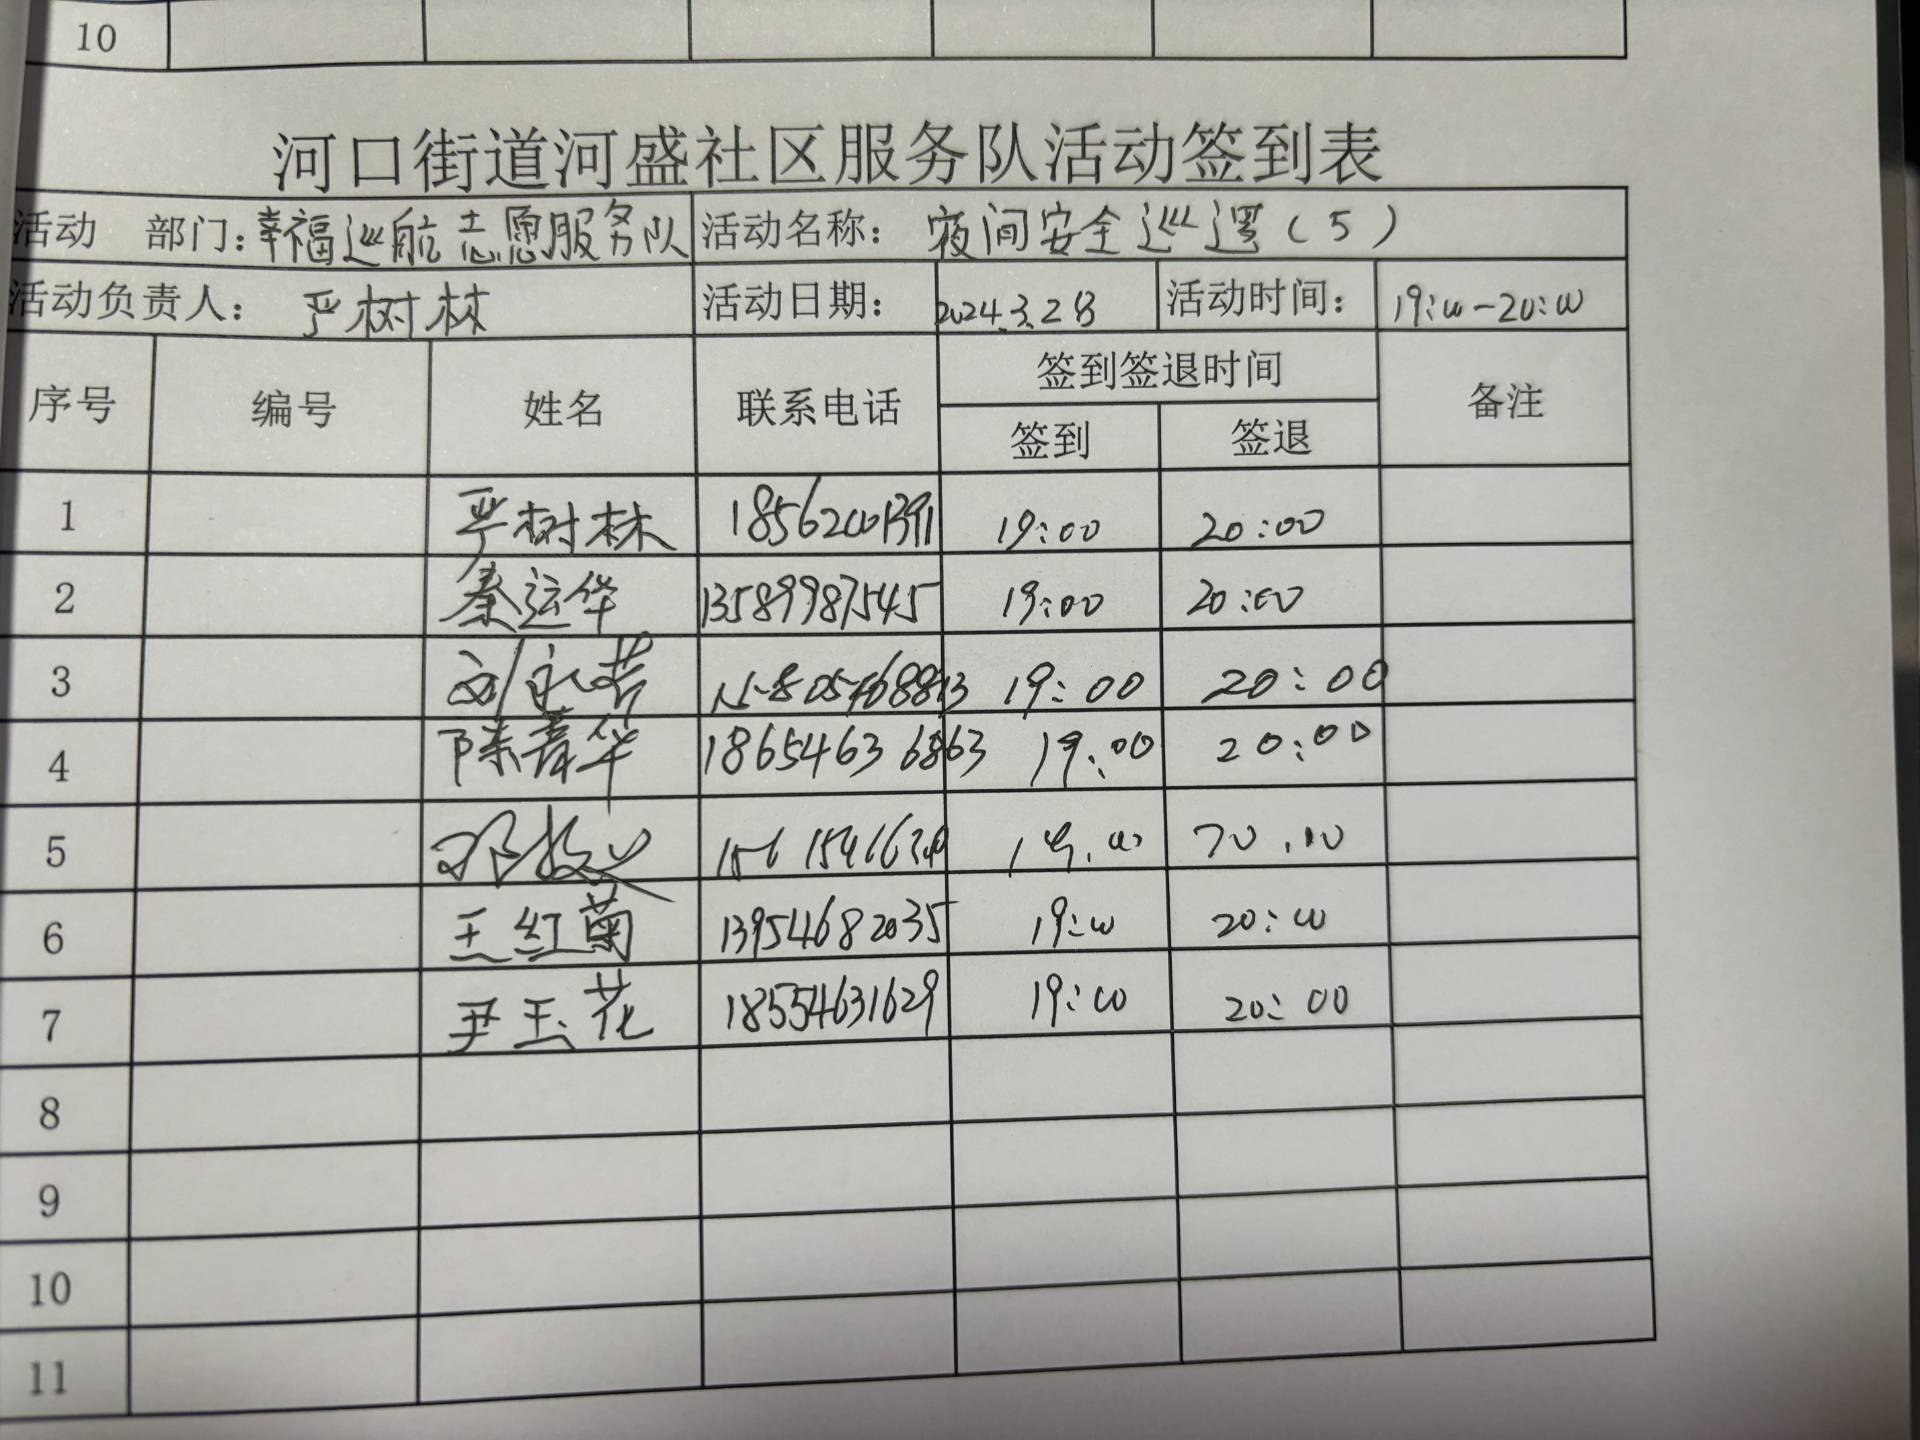 10
河口街道河盛社区服务队活动签到表
活动 部门：幸福巡航志愿服务队 活动名称： 夜间安全巡逻（5）
活动负责人： 严树林 活动日期： 2024.3.28 活动时间： 19:00-20:00
序号 编号 姓名 联系电话 签到签退时间 备注
签到 签退
1 严树林 19:00 20:00
2 秦运华 13589987545 19:00 20:00
3 19:00 20:00
4 陈青华 18654636863 19:00 20:00
5 19:00 20:00
6 王红菊 13954682035 19:00 20:00
7 尹玉花 18554631629 19:00 20:00
8
9
10
11